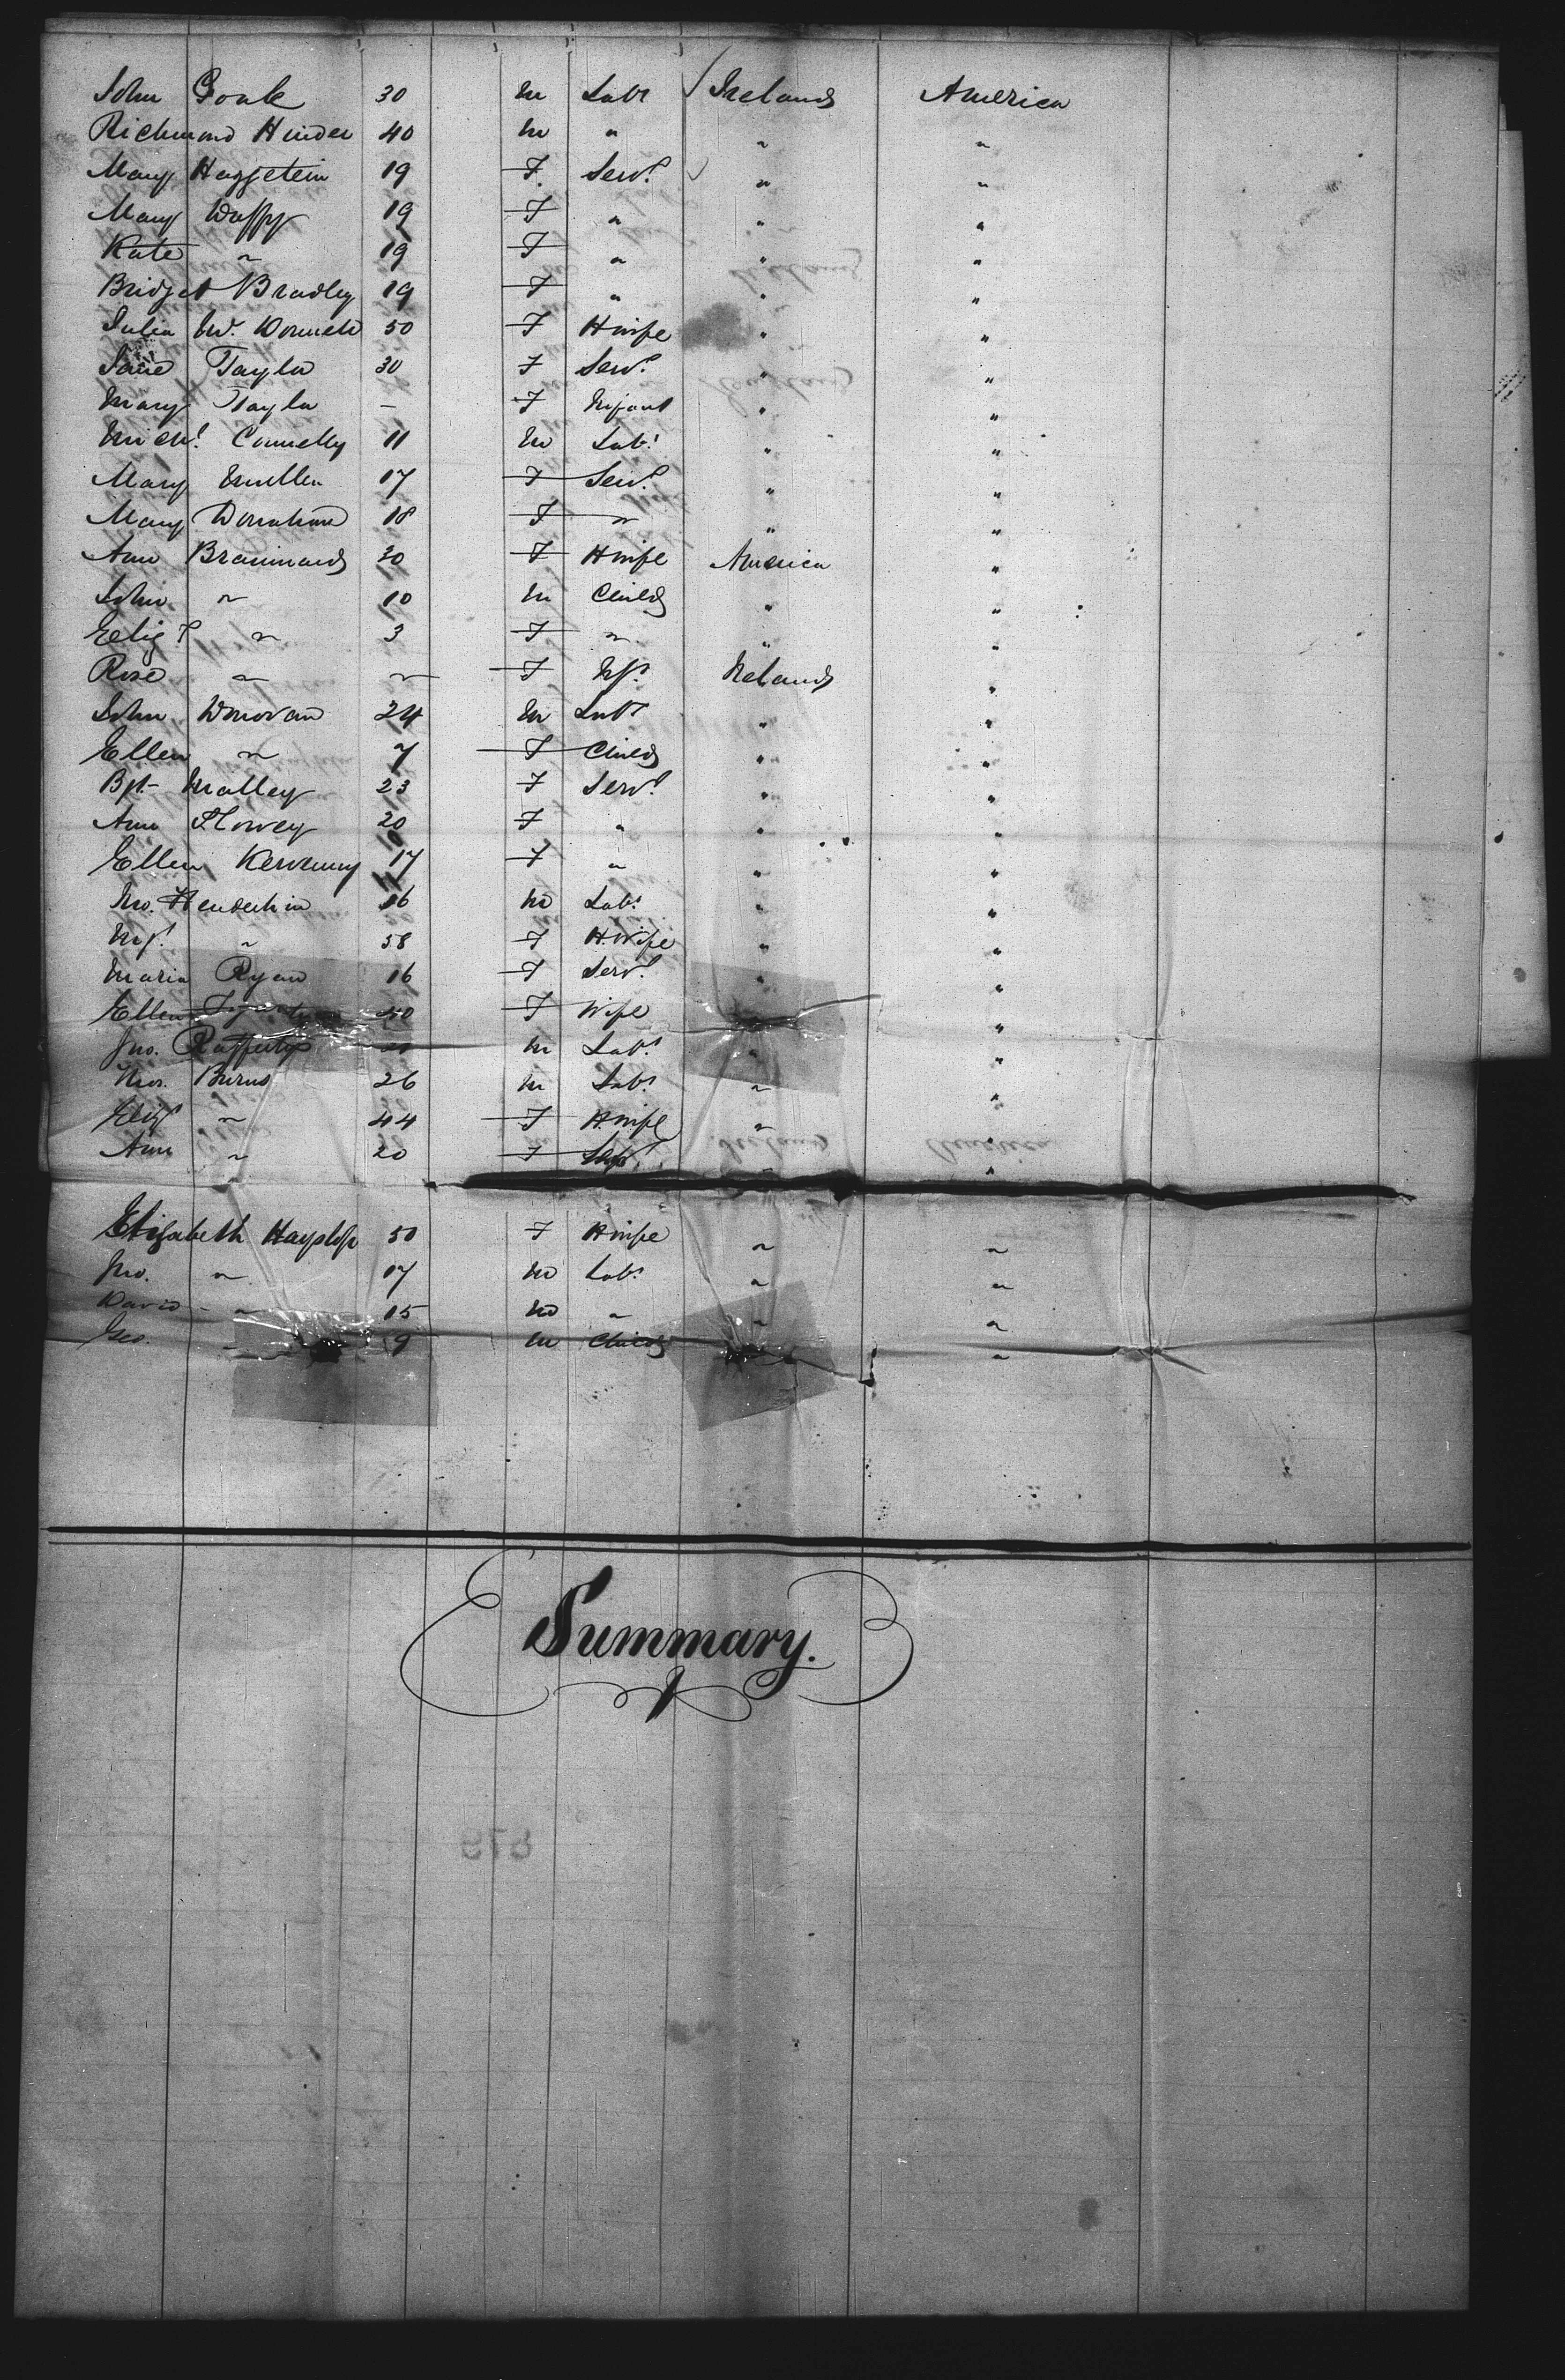 John 30 M Labr Ireland America
Richmond Hinder 40 M " " "
Mary 19 F. Servt " "
Mary Duffy 19 F " " "
Kate " 19 F " " "
Bridget Bradley 19 F " " "
Julia Mc. Donnell 50 F Hwife " "
Jane Taylor 30 F Servt " "
Mary Taylor — F Infant " "
Michl. Connelly 11 M Labr " "
Mary Mullen 17 F Servt " "
Mary Donahue 18 F " " "
Ann 30 F Hwife America "
John " 10 M Child " "
Eliz " 3 F " " "
Rose " " F Inft Ireland "
John Donovan 24 M Labr " "
Ellen " 7 F Child " "
Bgt. Malley 23 F Servt " "
Ann 20 F " " "
Ellen 17 F " " "
M Labr " "
" 58 F H.Wife " "
Maria Ryan 16 F Servt " "
Ellen F Wife "
Jno. Rafferty M Labr " "
Burns 26 M Labr " "
Elizt " 44 F Hwife " "
Ann " 20 F " "
Elizabeth Hayslip 50 F Hwife " "
Jno. " 17 M Labr " "
David " 15 M " " "
Geo. " 9 M Child " "
Summary.